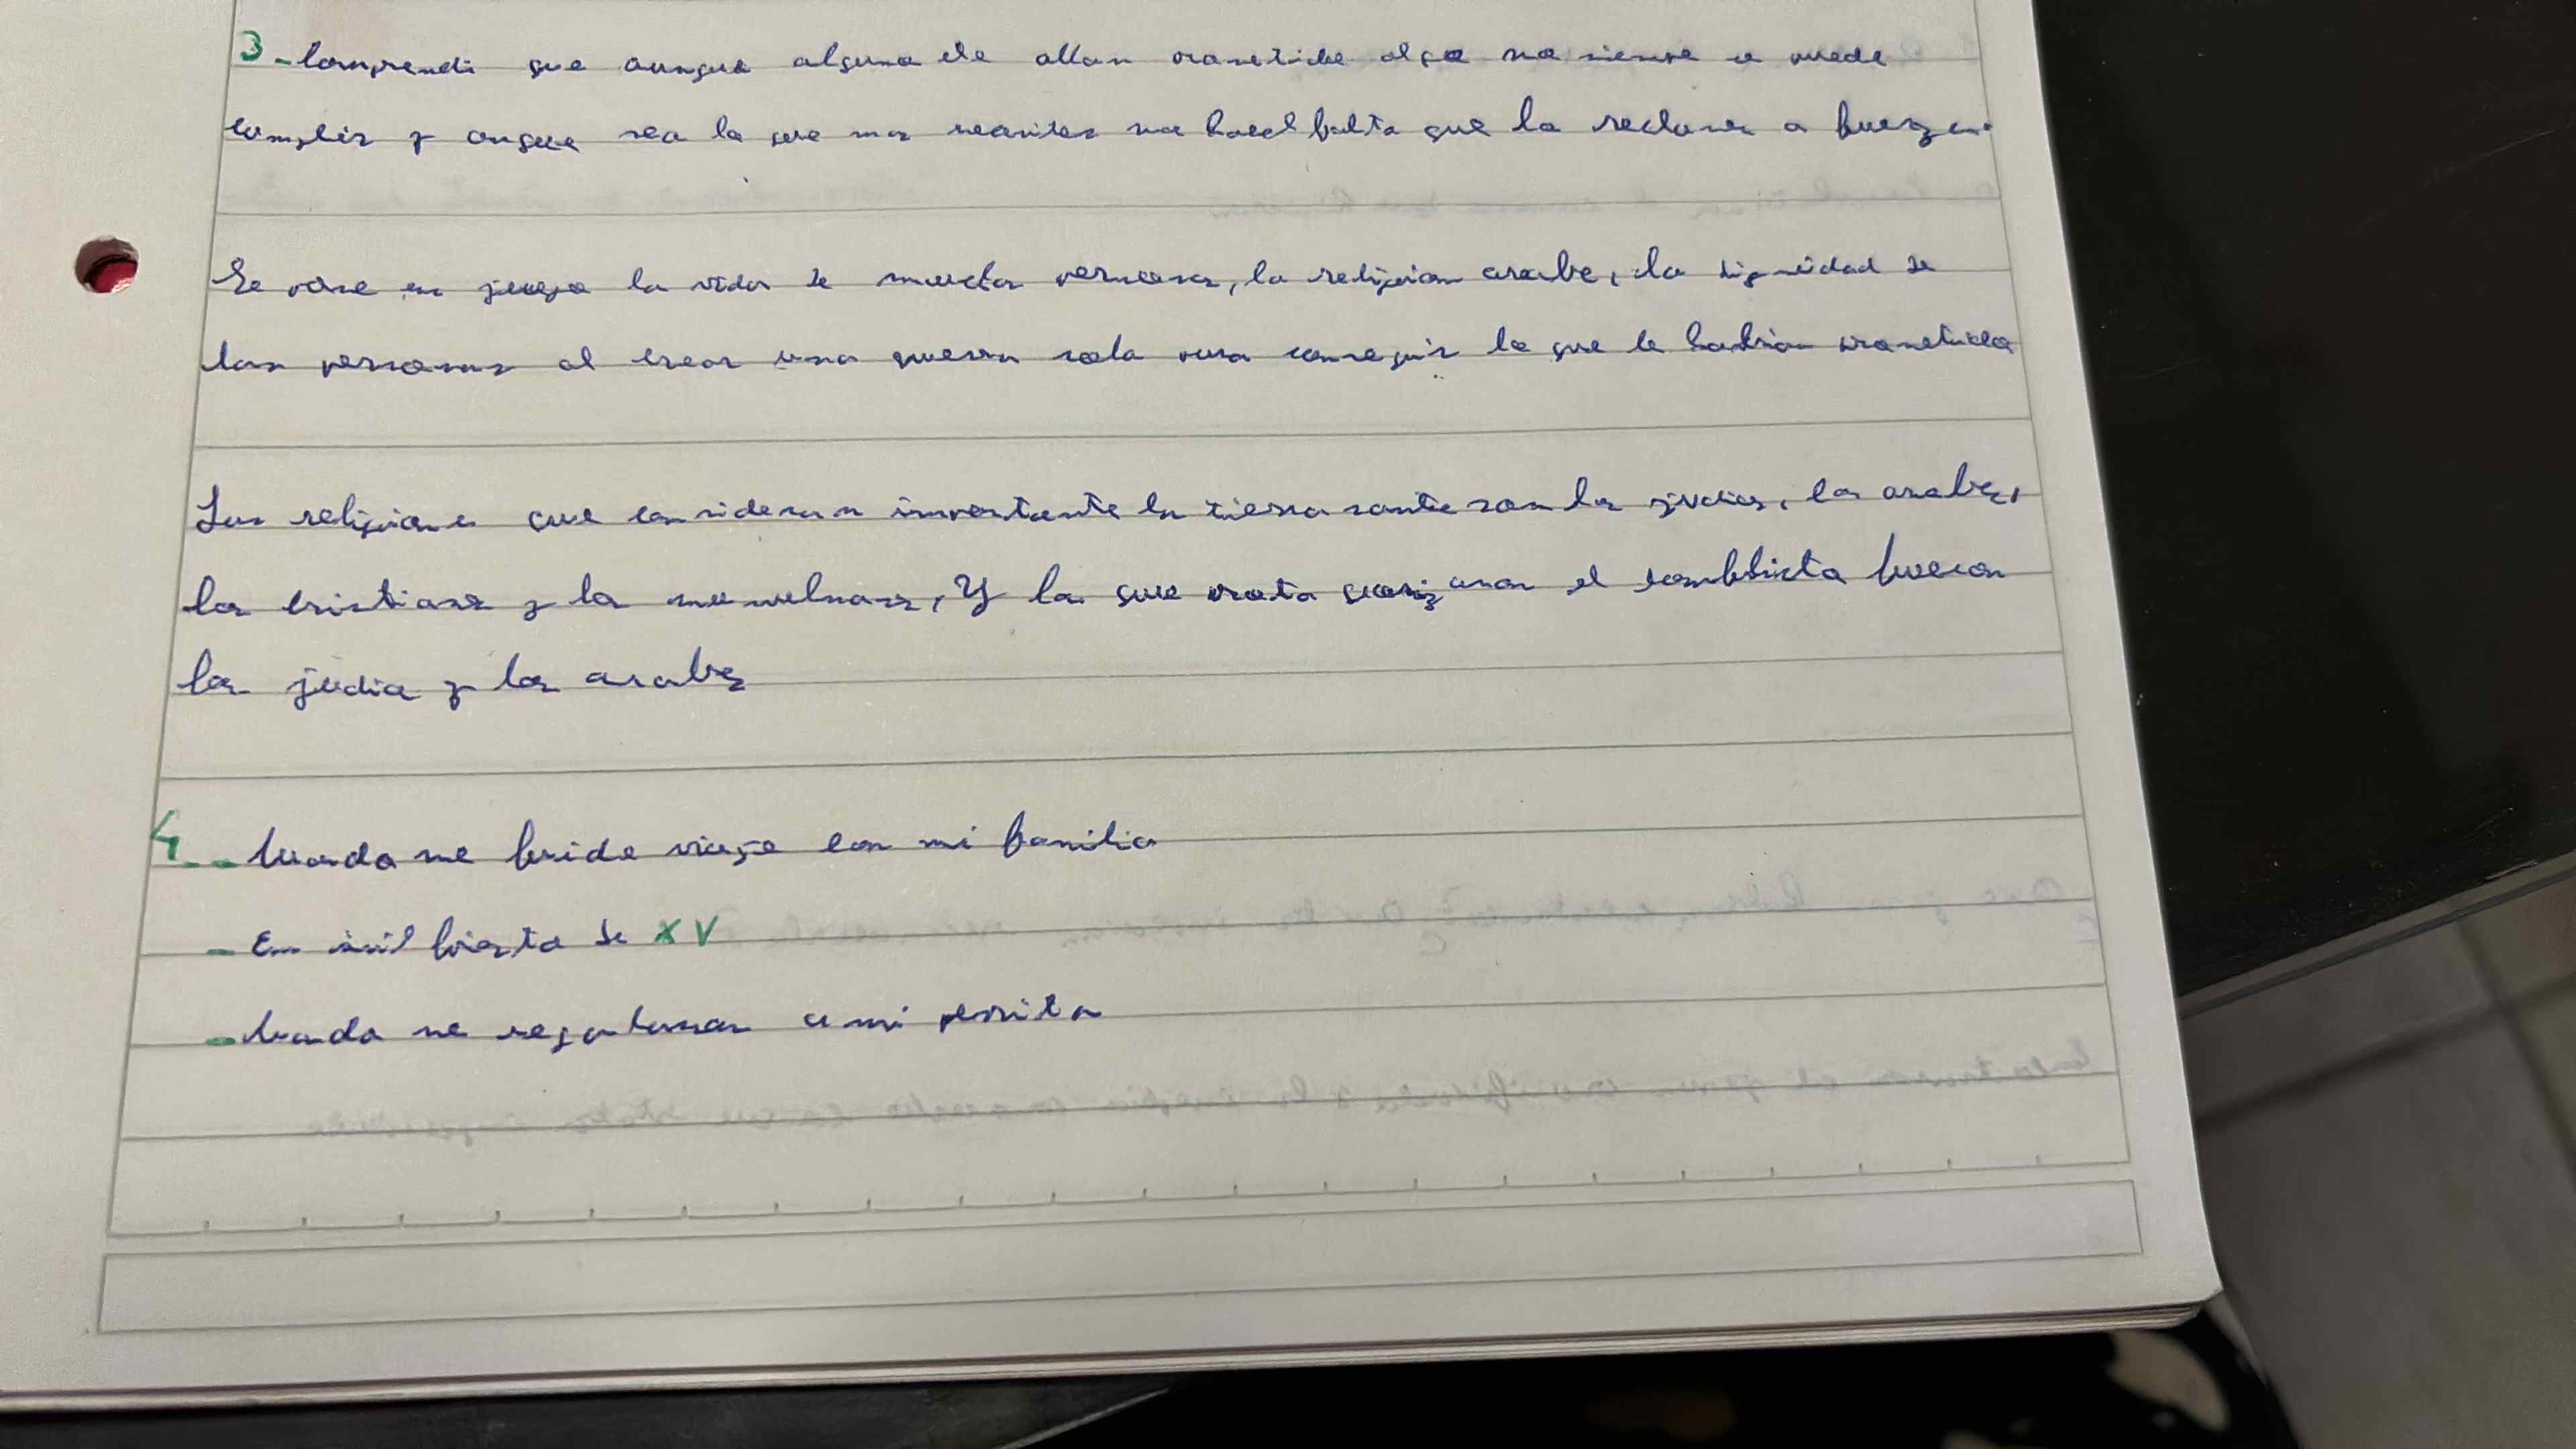 3-Comprendi que aunque alguna de allan prometido algo no siempre se puede
cumplir y aunque sea lo que mas necesites no hace falta que lo reclames a fuerza.
Se pone en juego la vida de mucha personas, la religion arabe, la dignidad de
las personas al crear una guerra solo para conseguir lo que le habian prometido
Las religiones que consideran importante la tierra santa son la judia, la arabe,
la cristiana y la musulmana, Y la que el conflicto fueron
la judia y la arabe
4.- Cuando me fui de viaje con mi familia
- En mi fiesta de XV
- Cuando me regalaron a mi perrita